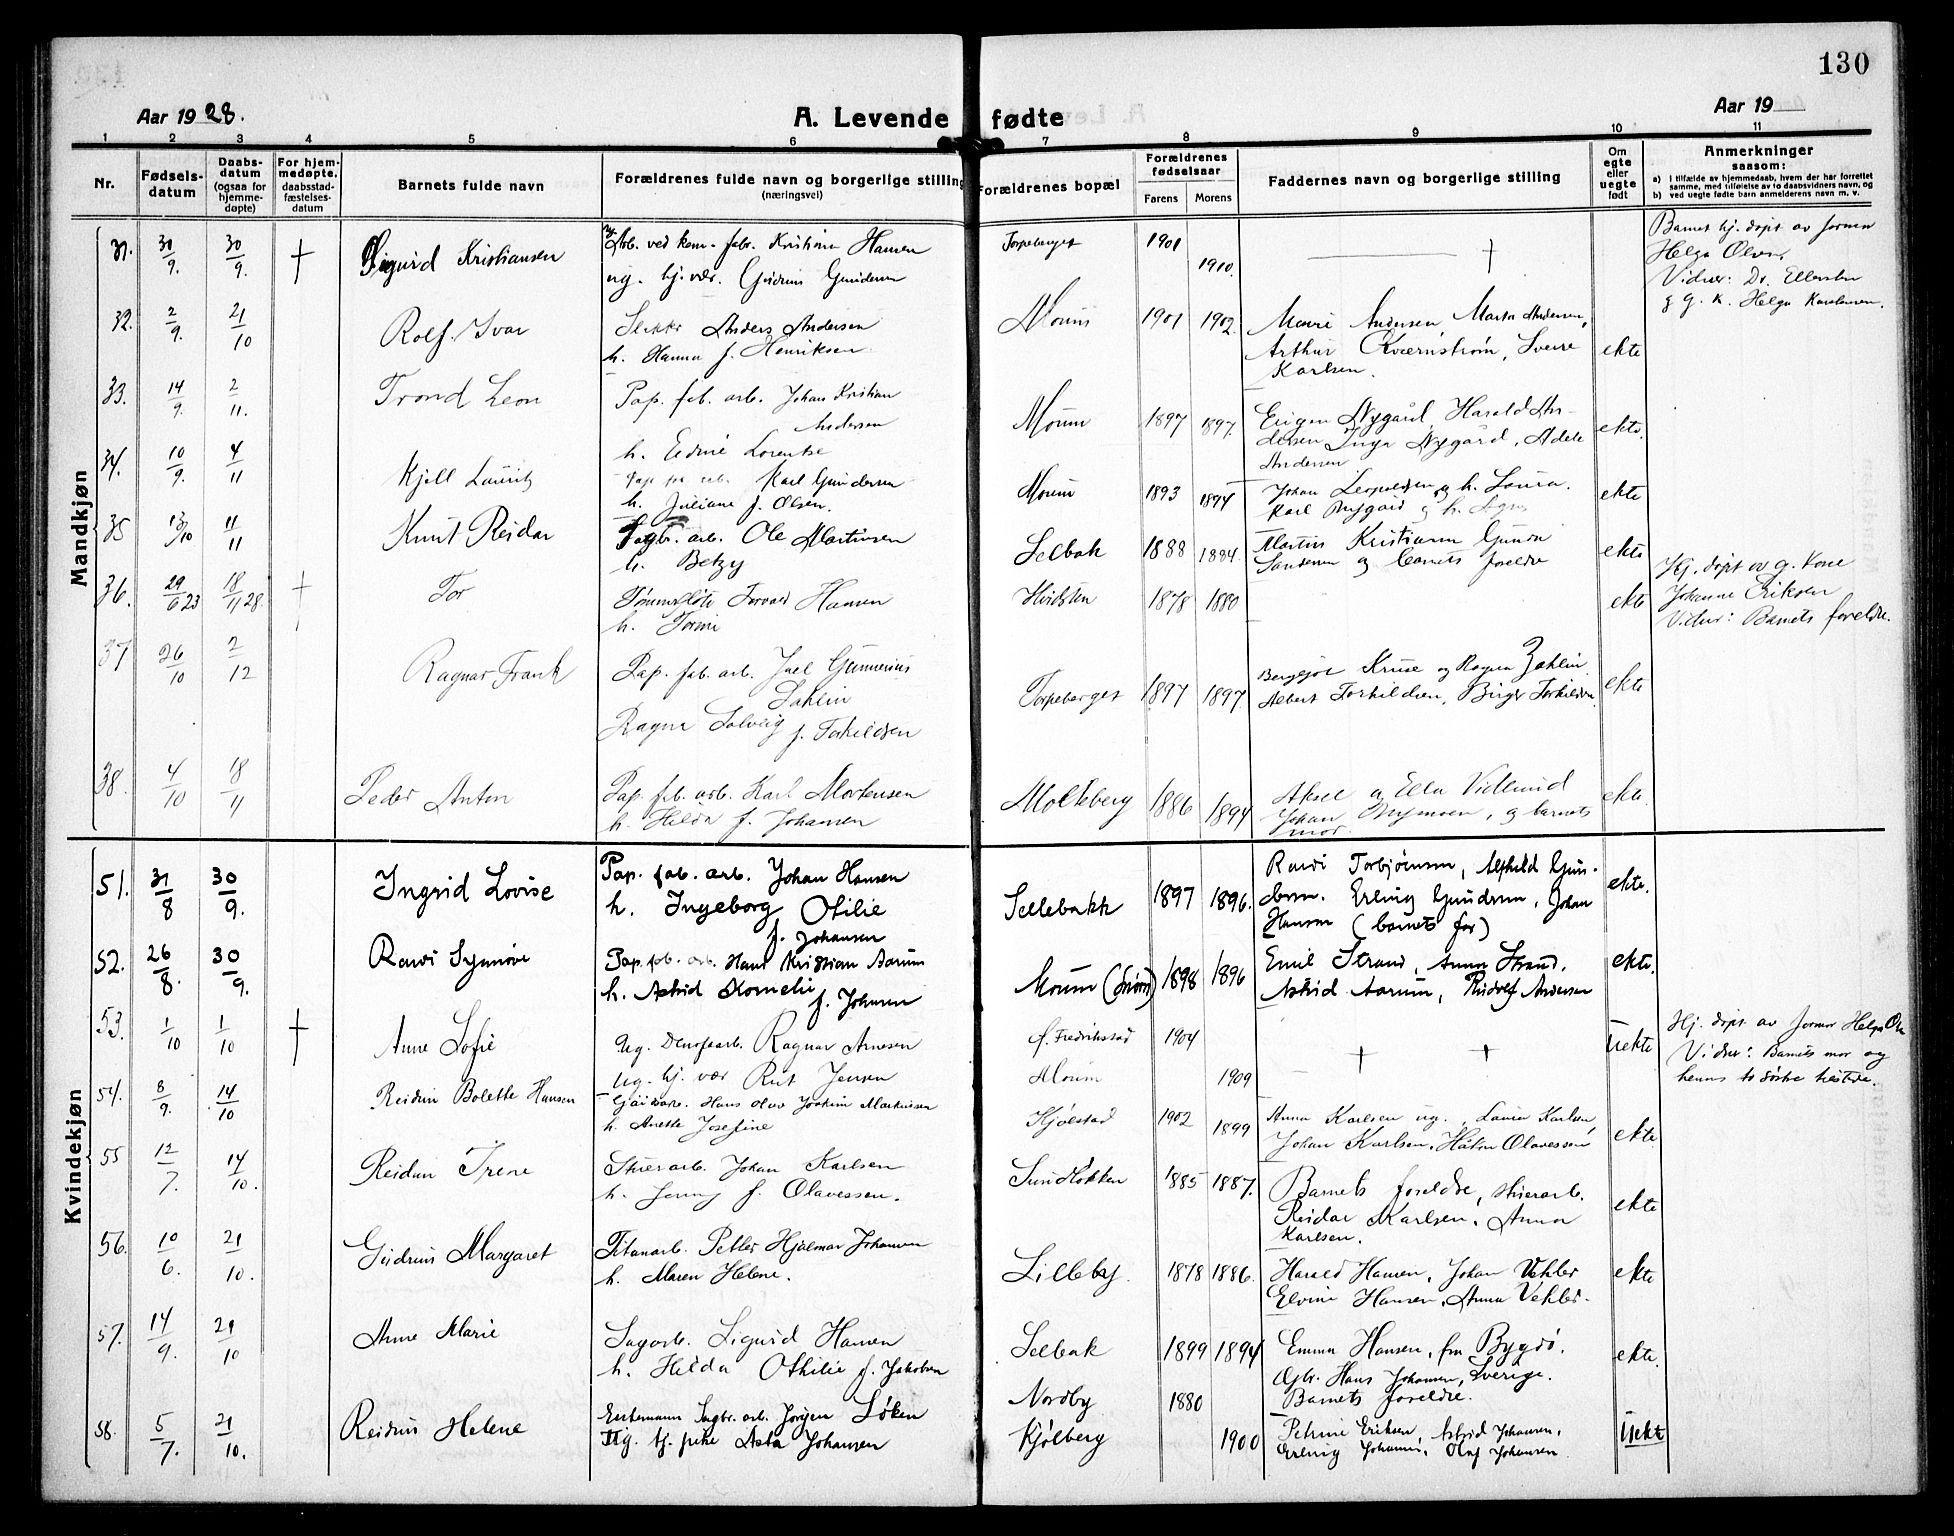 130
Aar 1928.
A. Levende fødte
Aar 19
1 2 3 4 5 6 7 8 9 10 11
Nr.
Fødsels-
datum
Daabs-
datum
(ogsaa for
hjemme-
døpte)
For hjem-
medøpte,
daabsstad-
fæstelses-
datum
Barnets fulde navn
Forældrenes fulde navn og borgerlige stilling
(næringsvei)
Forældrenes bopæl
Forældrenes
fødselsaar
Farens Morens
Faddernes navn og borgerlige stilling
Om
egte
eller
uegte
født
Anmerkninger
saasom:
a) i tilfælde av hjemmedaab, hvem der har forrettet
samme, med tilføielse av to daabsvidners navn, og
b) ved uegte fødte barn anmelderens navn m. v.
Mandkjøn
31. 30/9. 30/9. † Sigurd Kristiansen
Arb. ved kem. fabr. Kristian Hansen
ug. hj. vær. Gudrun Gundersen
Torpeberget 1901 1910. †
Barnet hj. døpt av formor
Helga Olsen
Vidner: Dr. Ellersten
g. k. Helga Karlsen.
32. 2/9. 21/10 Rolf Ivar
Anders Andersen
h. Hanna f. Henriksen
Moum 1901 1902.
Andersen, Marta Andersen,
Arthur Kvernstrøm, Sverre
Karlsen. ekte
33. 14/9. 2/11. Trond Leon
Pap. fab. arb. Johan Kristian
Andersen
h. Edine Lorentse
Moum 1897 1897.
Eugen Nygård, Harald An-
dersen Inga Nygård, Adele
Andersen ekte.
34. 10/9. 4/11 Kjell Lauritz
Pap fa arb. Karl Gundersen
h. Juliane f. Olsen.
Moum 1893 1894
Johan Leopoldsen og h. Laura.
Karl Nygård og h. Agnes ekte
35 13/10 11/11 Knut Reidar
Sagbr. arb. Ole Martinsen
h. Betzy
Selbak 1888 1884.
Martin Kristiansen Gunda
og barnets foreldre ekte
36. 29/6 23 18/11 28. † Tor
Tømmerfløte Torvald Hansen
h. Tomine
Hvidsten 1878 1880 ekte
Hj. døpt av g. kone
Johanne Eriksen
Vidner: Barnets foreldre.
37 26/10 2/12 Ragnar Frank
Pap. fab. arb. Joel Gunnerius
Sahlin
Ragna Solveig f. Torkildsen
Torpeberget 1897 1897
Bergljot Kruse og Ragna Zahlin
Albert Torkildsen, Birger Torkildsen. ekte
38. 4/10 18/11 Peder Anton
Pap. feb. arb. Karl Mortensen
h. Hilda f. Johansen
Molteberg 1886 1894
Aksel og Ella Vidlund
Johan Nymoen, og barnets
mor ekte.
Kvindekjøn
51. 31/8 30/9. Ingrid Lovise
Pap. fab. arb. Johan Hansen
h. Ingeborg Otilie
f. Johansen
Sellebakk 1897 1896.
Randi Torbjørnsen, Alfhild Gun-
dersen. Erling Gundersen, Johan
Hansen (barnets far) ekte.
52. 26/8. 30/9. Randi Synnøve
Pap. fab. arb. Hans Kristian Aarum
h. Astrid Kornelie f. Johansen
Moum 1898 1896
Emil Strand, Anna Strand,
Astrid Aarum, Rudolf Andersen ekte.
53. 1/10 1/10 † Anne Sofie
Ug. Ragnar Arnesen
Ug. hj. vær Rut Jensen
f. Fredrikstad 1904
Moum 1909 † † Uekte
Hj. døpt av formor Helga Olsen
Vidner: Barnets mor og
hennes to søstre
54. 8/9. 14/10 Reidun Bolette Hansen
Hans Olav Joakim Markussen
h. Anette Josefine
Kjølstad 1902 1899
Anna Karlsen ug., Laura Karlsen
Johan Karlsen, Håkon Olavessen ekte.
55 12/7. 14/10. Reidun Irene
Stuerarb. Johan Karlsen
h. Jenny f. Olavessen.
Sundløkken 1885 1887.
Barnets foreldre, stuerarb.
Reidar Karlsen, Anna
Karlsen. ekte
56. 10/6. 21/10. Gudrun Margaret
Titanarb. Petter Hjalmar Johansen
h. Maren Helene.
Lilleby. 1878 1886.
Harald Hansen, Johan Vehler
Elvine Hansen, Anna Vehler. ekte
57. 14/9. 21/10 Anne Marie
Sagarb. Sigurd Hansen
h. Hilda Othilie f. Jakobsen
Selbak 1899 1894
Emma Hansen, fra Bygdø.
Gbr. Hans Johansen, Sverige.
Barnets foreldre. ekte.
58. 5/7. 21/10. Reidun Helene
Enkemann Sagbr. arb. Jørgen Løken
Ug. tj. pike Asta Johansen
Nordby 1880
Kjølberg 1900
Petrine Eriksen, Astrid Johansen,
Erling Johansen, Olaf Johansen Uekte